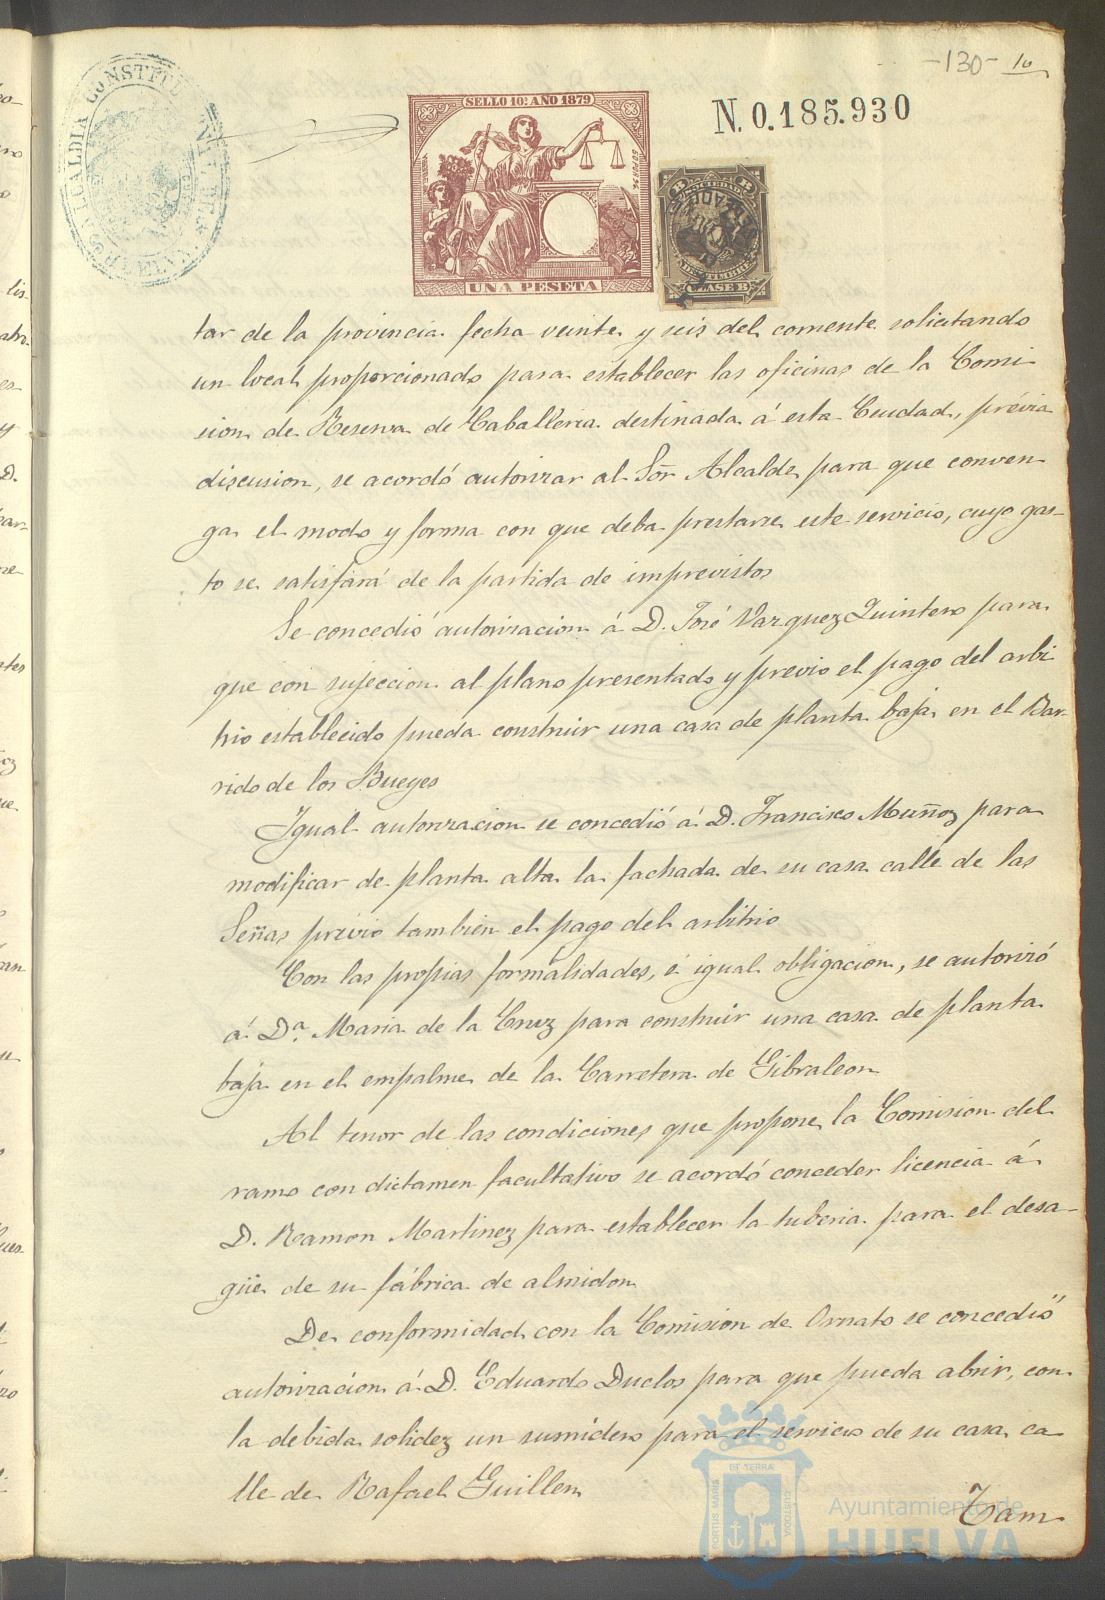 -130- 10
ALCALDIA CONSTITU
HUELVA
SELLO 10º AÑO 1879
UNA PESETA
N. 0.185.930
B SOCIEDAD B
DEL TIMBRE
CLASE B
tar de la provincia fecha veinte y seis del corriente solicitando
un local proporcionado para establecer las oficinas de la Comi
sion de Reserva de Caballeria destinada á esta Ciudad, prévia
discusion, se acordó autorizar al Sór Alcalde para que conven
ga el modo y forma con que deba prestarse este servicio, cuyo gas-
to se satisfará de la partida de imprevistos
Se concedió autorizacion á D. José Vazquez Quintero para
que con sujeccion al plano presentado y previo el pago del arbi
trio establecido pueda construir una casa de planta baja en el Bar-
rido de los Bueyes
Igual autorizacion se concedió á D. Francisco Muñoz para
modificar de planta alta la fachada de su casa calle de las
Señas prévio tambien el pago del arbitrio
Con las propias formalidades, é igual obligacion, se autorizó
á Dª. Maria de la Cruz para construir una casa de planta
baja en el empalme de la Carretera de Gibraleon
Al tenor de las condiciones que propone la Comision del
ramo con dictamen facultativo se acordó conceder licencia á
D. Ramon Martinez para establecer la tuberia para el desa-
güe de su fábrica de almidon
De conformidad con la Comision de Ornato se concedió
autorizacion á D. Eduardo Duclos para que pueda abrir, con
la debida solidez un sumidero para el servicio de su casa ca
lle de Rafael Guillen
Tam
PORTUS MARIS
ET TERRÆ
CUSTODIA
Ayuntamiento de
HUELVA